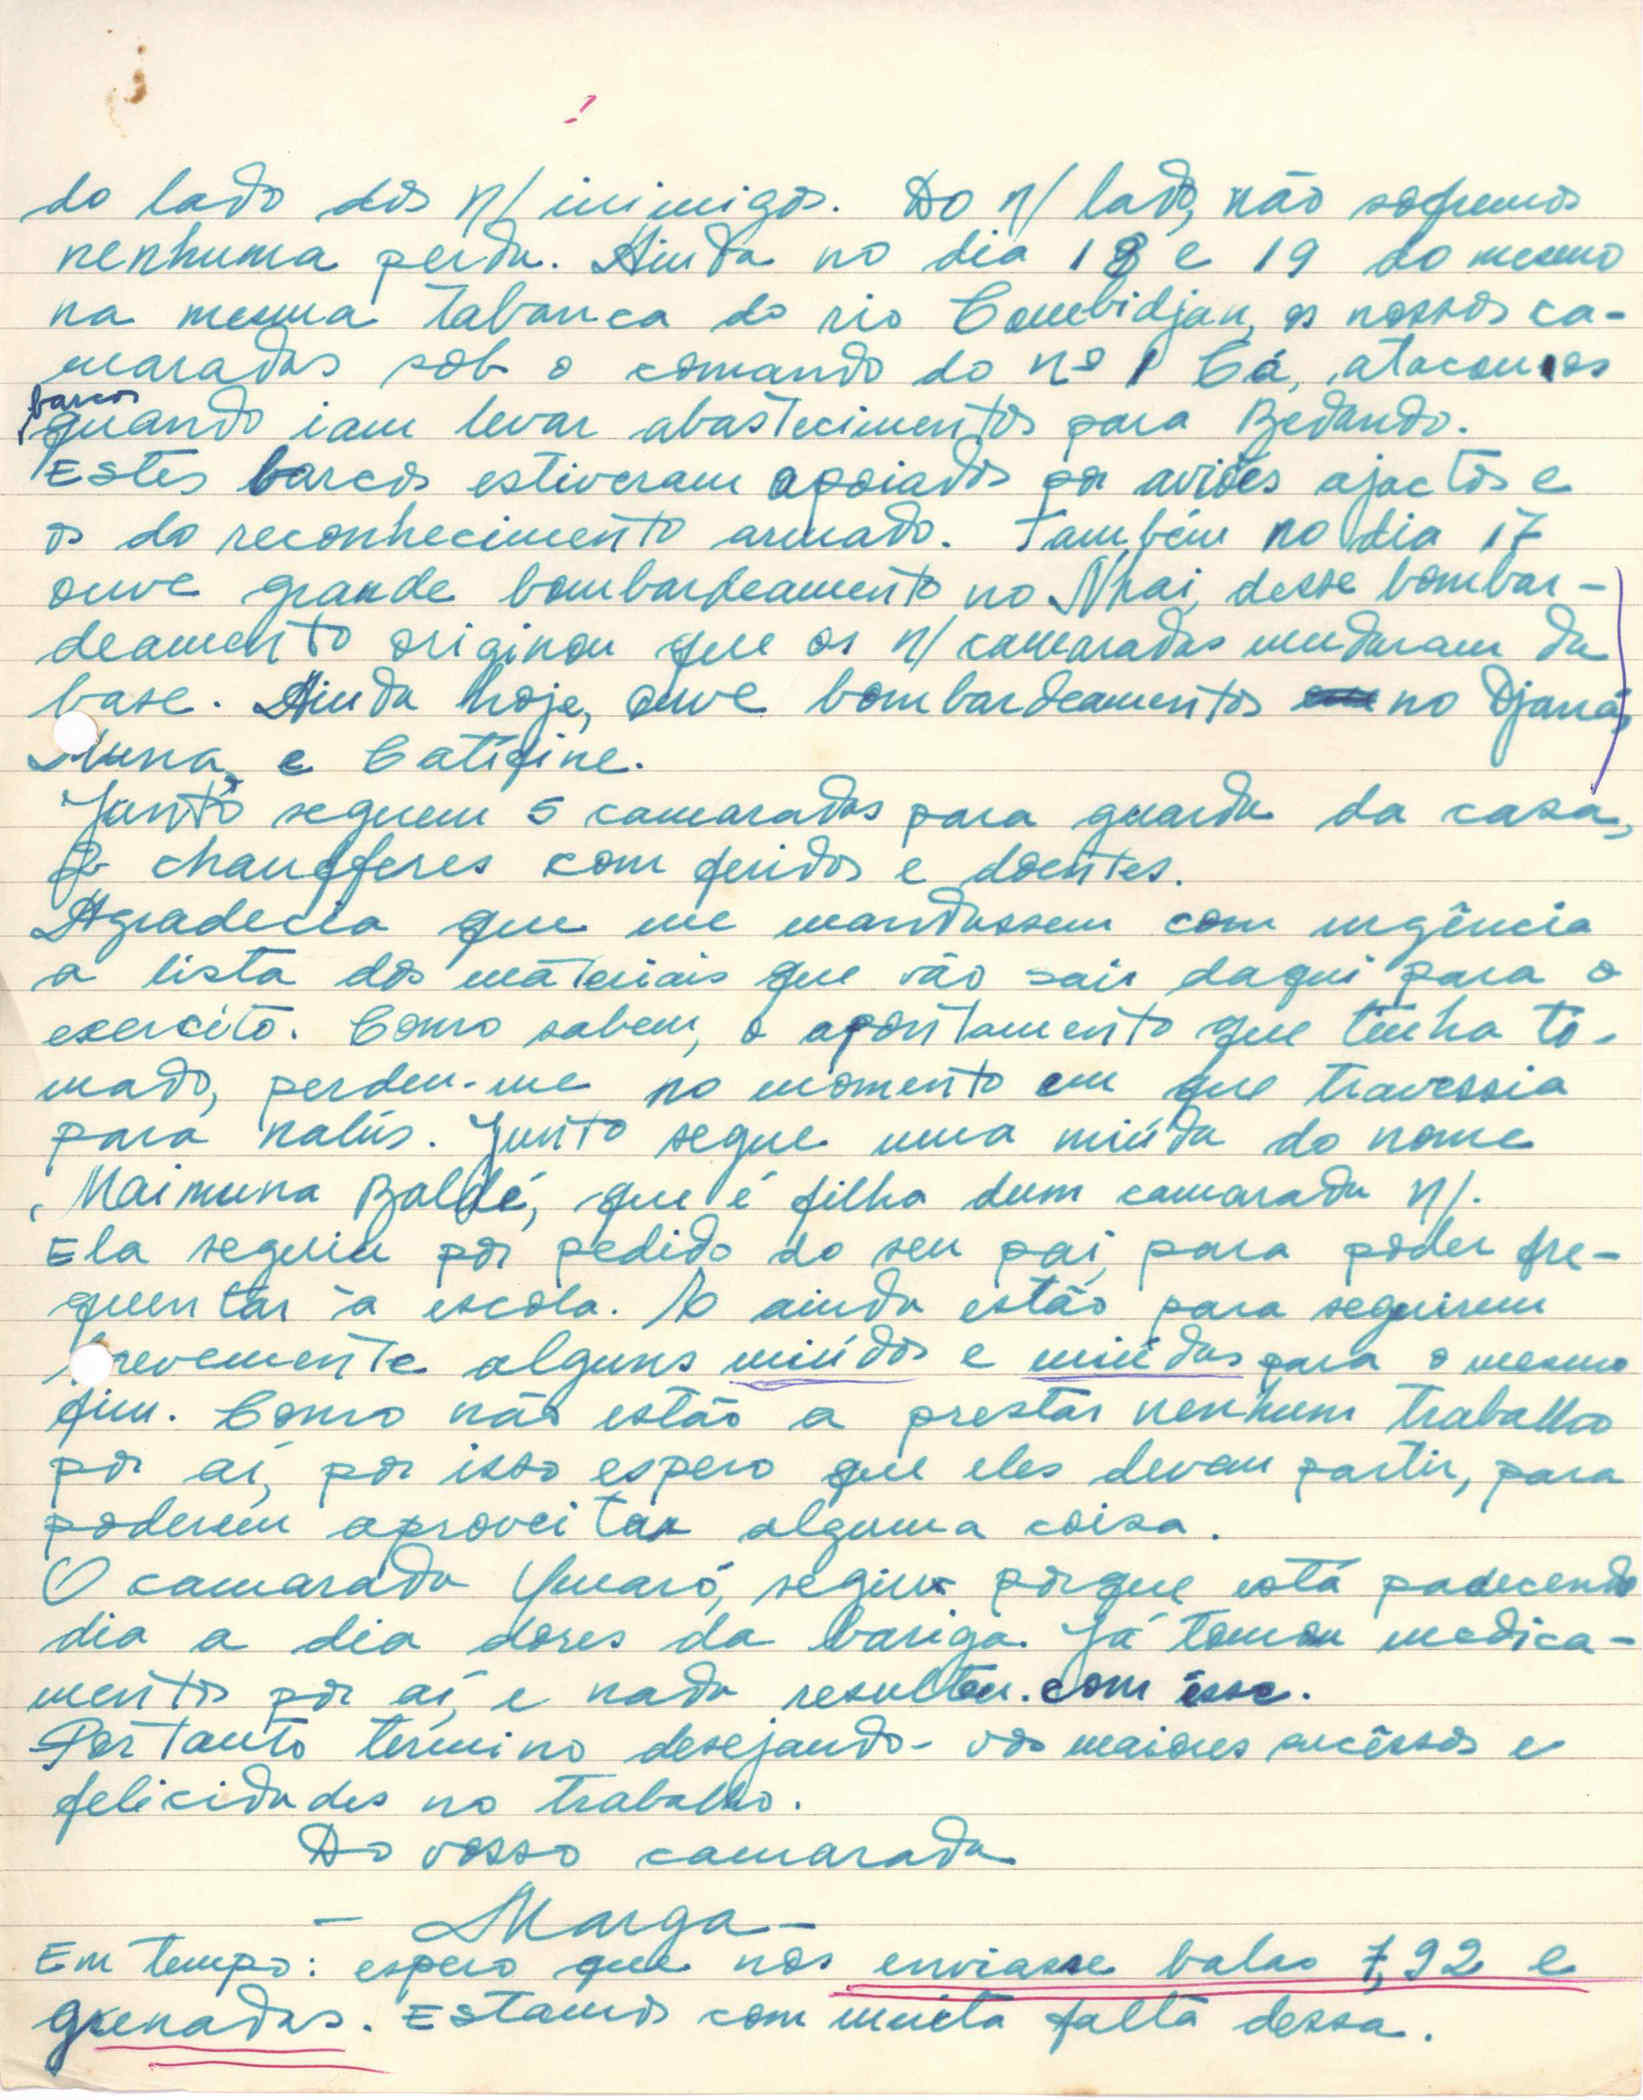 do lado dos n/ inimigos. Do n/ lado, não sofremos
nenhuma perda. Ainda no dia 18 e 19 do mesmo
na mesma tabanca do rio Combidjan, os nossos ca-
maradas sob o comando do nº 1 Cá, atacou os
barcos
quando iam levar abastecimentos para Bedando.
Estes barcos estiveram apoiados por aviões ajactos e
os do reconhecimento armado. Também no dia 17
ouve grande bombardeamento no Nhai, desse bombar-
deamento originou que os n/ camaradas mudaram da
base. Ainda hoje, ouve bombardeamentos no Djaná,
Nuna, e Catifine.
Junto seguem 5 camaradas para guarda da casa,
2 chaufferes com feridos e doentes.
Agradecia que me mandassem com urgência
a lista dos materiais que vão sair daqui para o
exercito. Como sabem, o apontamento que tinha to-
mado, perdeu-me no momento em que travessia
para nalús. Junto segue uma miúda do nome
Maimuna Baldé, que é filha dum camarada n/.
Ela seguiu por pedido do seu pai, para poder fre-
quentar à escola. E ainda estão para seguirem
brevemente alguns miúdos e miúdas para o mesmo
fim. Como não estão a prestar nenhum trabalho
por aí, por isso espero que eles devem partir, para
poderem aproveitar alguma coisa.
O camarada Umaró, seguiu porque está padecendo
dia a dia dores da bariga. Já tomou medica-
mentos por aí, e nada resultou com isso.
Portanto termino desejando-vos maiores sucêssos e
felicidades no trabalho.
Do vosso camarada
- Marga -
Em tempo: espero que nos enviasse balas 7,92 e
grenadas. Estamos com muita falta dessa.